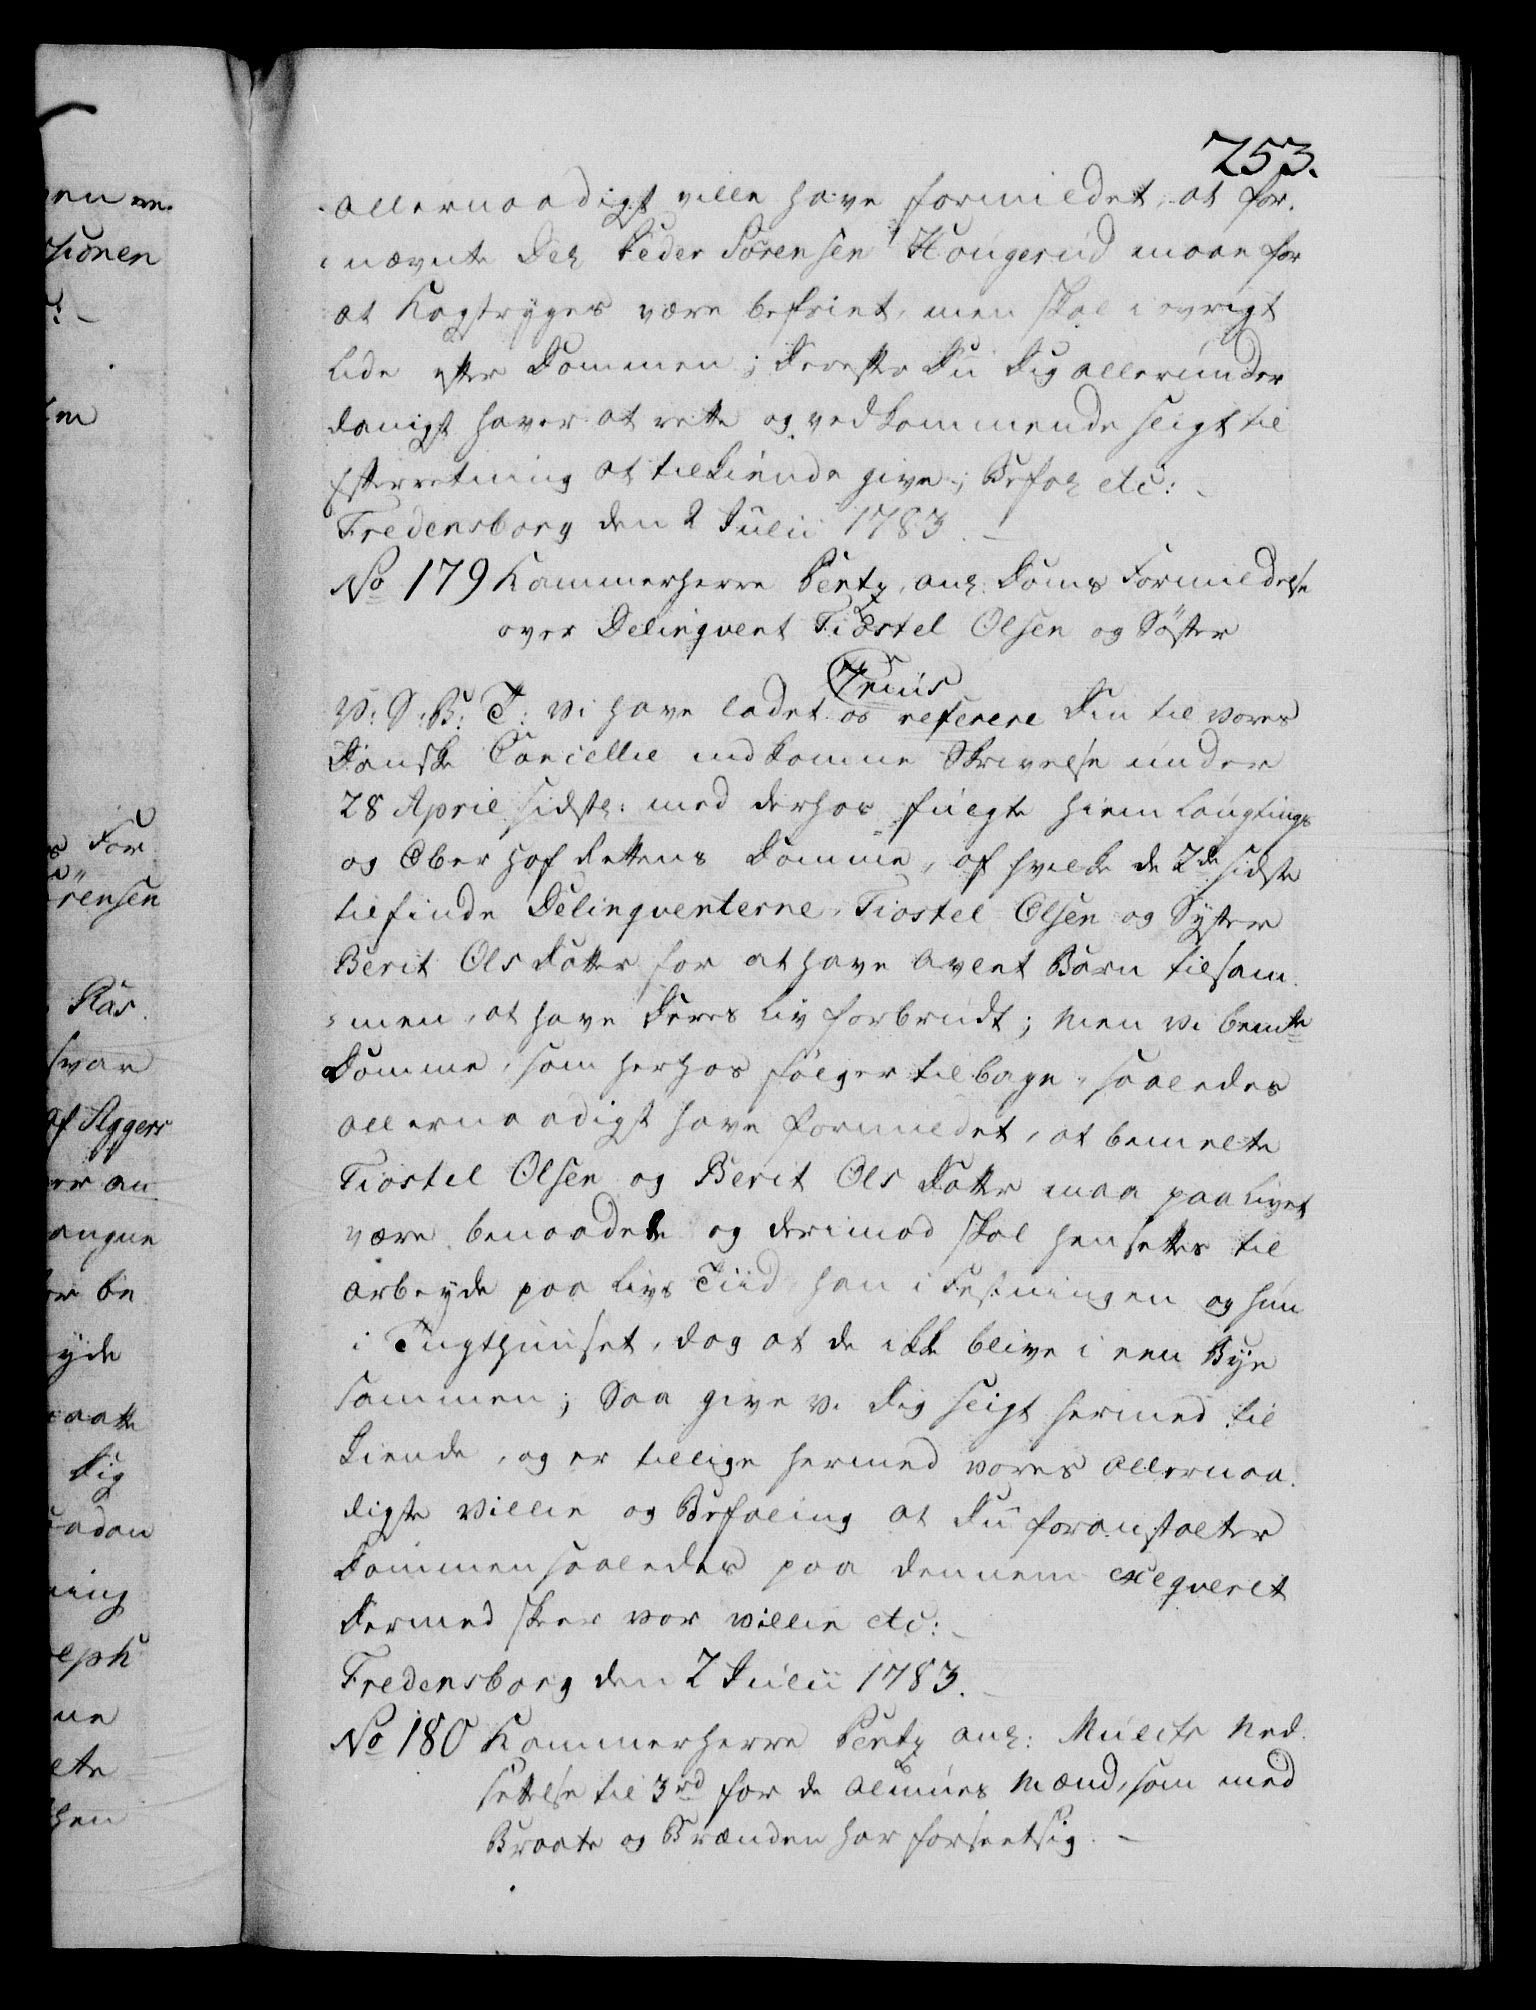 253.
allernaadigst ville have formildet, at for-
nævnte Del: Peder Sörensen Hougerud maae for
at Kagstryges være befriet, men skal i øvrigt
lide efter Dommen; Derefter Du Dig allerunder
danigst haver at rette og vedkommende sligt til
Efterretning at tilkiende give; Befal: etc:
Fredensborg den 2 Julii 1783.
No 179 Kammerherre Pentz, anl: Doms Formildelse
over Delinqvent Tiostel Olsen og Söster
V: S: B: T: Vi have ladet os referere Din til vores
Danske Cancellie indkomne Skrivelse under
28 April sidstl: med derhos fulgte Hiem Laugtings
og Ober Hof Rettens Domme, af hvilke de 2de sidste
tilfinde Delinqventerne Tiostel Olsen og Syster
Berit Ols Datter for at have avlet Barn tilsam-
men, at have Deres Liv forbrudt; Men Vi bemte
Domme, som herhos følger tilbage, saaledes
allernaadigst have formildet, at bemelte
Tiostel Olsen og Berit Ols Datter maa paa Livet
være benaadede og derimod skal hensettes til
arbeyde paa Livs Tiid, han i Festningen og hun
i Tugthuuset, dog at de ikke blive i een Bye
sammen; Saa give Vi Dig sligt hermed til
kiende, og er tillige hermed vores allernaa-
digste Villie og Befaling at Du foranstalter
Dommen saaledes paa dennem exeqveret
Dermed skeer vor Villie etc:
Fredensborg den 2 Julii 1783.
No 180 Kammerherre Pentz anl: Mulcts Ned-
settelse til 3 rd for de Almues Mænd, som med
Braate og Brænden har forseet sig.